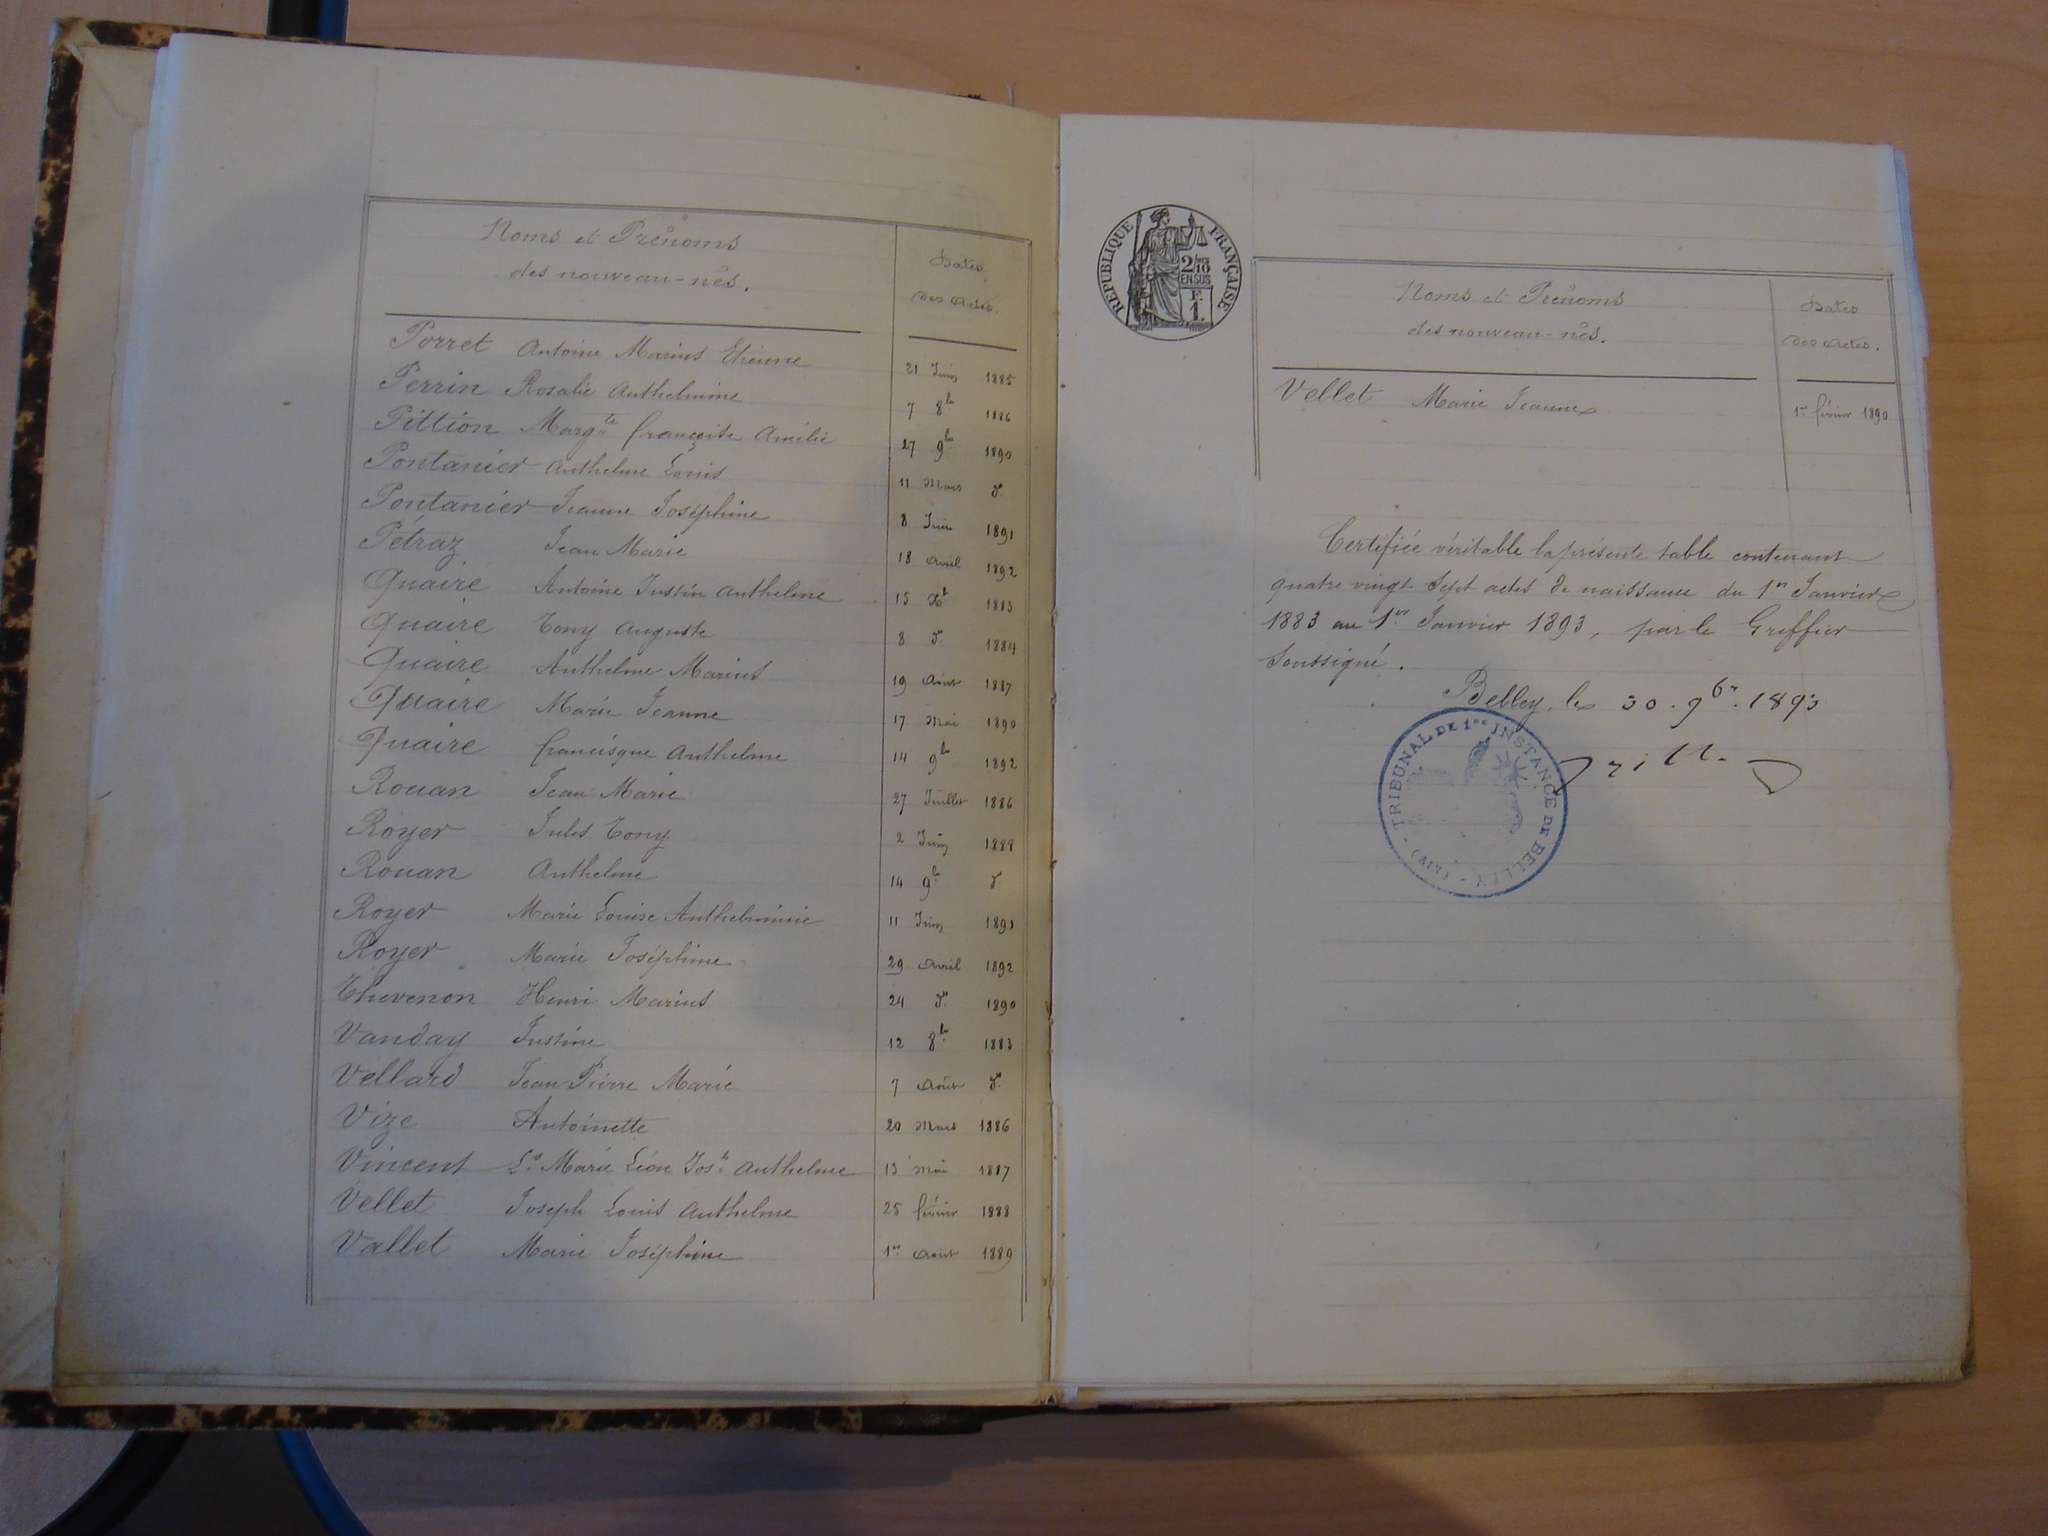 Noms et Prénoms
des nouveau-nés.
Dates
des actes.
Porret Antoine Marius Etienne 21 Juin 1885
Perrin Rosalie Anthelmine 7 8bre 1886
Pittion Margte françoise Amélie 27 9bre 1890
Pontanier Anthelme Louis 11 Mars do
Pontanier Jeanne Joséphine 8 Juin 1891
Pétraz Jean Marie 18 Avril 1892
Quaire Antoine Justin Anthelme 15 Xbre 1883
Quaire Tony Auguste 8 do 1884
Quaire Anthelme Marius 19 Août 1887
Quaire Marie Jeanne 17 Mai 1890
Quaire francisque Anthelme 14 9bre 1892
Rouan Jean Marie 27 Juillet 1886
Royer Jules Tony 2 Juin 1888
Rouan Anthelme 14 9bre do
Royer Marie Louise Anthelminie 11 Juin 1891
Royer Marie Joséphine 29 Avril 1892
Thevenon Henri Marius 24 do 1890
Vanday Justine 12 8bre 1883
Vellard Jean Pierre Marie 7 Août do
Vize Antoinette 20 Mars 1886
Vincent Ls Marie Léon Josh Anthelme 13 Mai 1887
Vellet Joseph Louis Anthelme 25 février 1888
Vallet Marie Joséphine 1er Août 1889
RÉPUBLIQUE FRANÇAISE
2/10
EN SUS
F.
1.
Noms et Prénoms
des nouveau-nés.
Dates
des actes.
Vellet Marie Jeanne 1er février 1890
Certifiée véritable la présente table contenant
quatre vingt sept actes de naissance du 1er Janvier
1883 au 1er Janvier 1893, par le Greffier
soussigné.
Belley, le 30. 9bre. 1893
TRIBUNAL DE 1RE INSTANCE DE BELLEY - (AIN) -